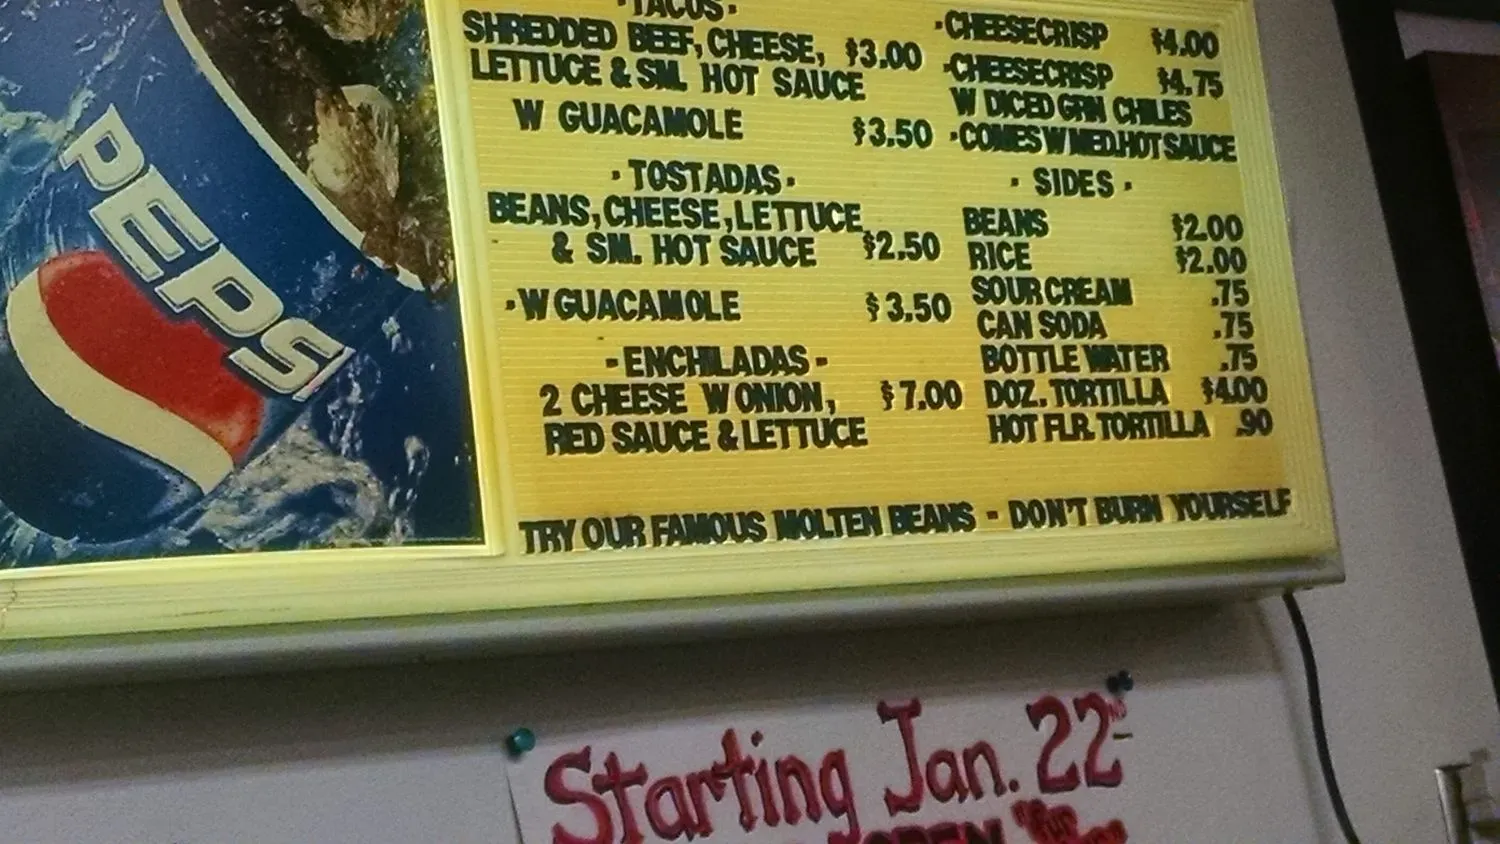 PEPSI
·TACOS·
SHREDDED BEEF, CHEESE, $3.00
LETTUCE & SM. HOT SAUCE
W GUACAMOLE $3.50
·TOSTADAS·
BEANS, CHEESE, LETTUCE
& SM. HOT SAUCE $2.50
·W GUACAMOLE $3.50
-ENCHILADAS-
2 CHEESE W ONION, $7.00
RED SAUCE & LETTUCE
·CHEESECRISP $4.00
·CHEESECRISP $4.75
W DICED GRN CHILES
·COMES W MED. HOT SAUCE
· SIDES ·
BEANS $2.00
RICE $2.00
SOUR CREAM .75
CAN SODA .75
BOTTLE WATER .75
DOZ. TORTILLA $4.00
HOT FLR. TORTILLA .90
TRY OUR FAMOUS MOLTEN BEANS - DON'T BURN YOURSELF
Starting Jan. 22nd
OPEN